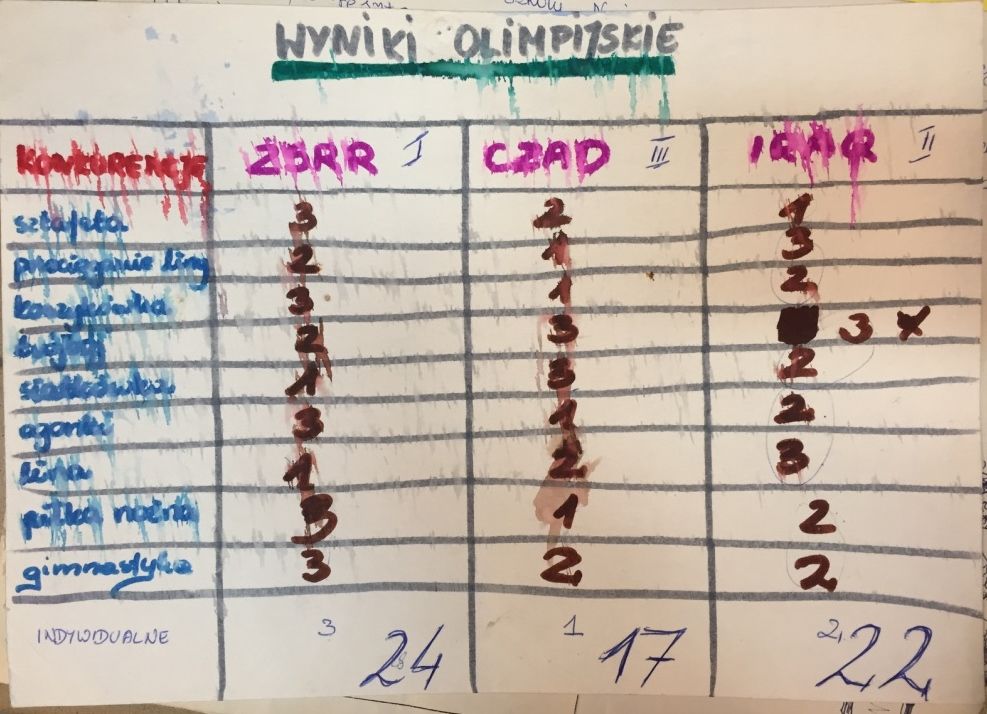 WYNIKI OLIMPIJSKIE
KONKURENCJE ZSRR I CZAD III II
sztafeta 3 2 1
przeciąganie liny 2 1 3
koszykówka 3 1 2
2 3 3
siatkówka 1 3 2
3 1 2
1 2 3
piłka nożna 3 1 2
gimnastyka 3 2 2
INDYWIDUALNE 3 24 1 17 2, 22